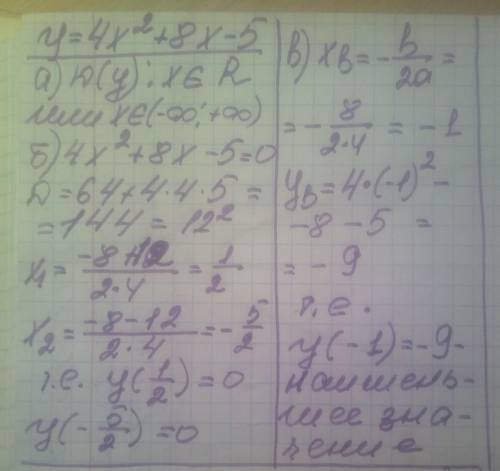 y=4x²+8x-5
а) D(y): x∈R
или x∈(-∞; +∞)
б) 4x²+8x-5=0
D=64+4·4·5=
=144=12²
x₁=(-8+12)/(2·4)=1/2
x₂=(-8-12)/(2·4)=-5/2
т.е. y(1/2)=0
y(-5/2)=0
в) xв=-b/2a=
=-8/(2·4)=-1
yв=4·(-1)²-
-8-5=
=-9
т.е.
y(-1)=-9-
наимень-
шее зна-
чение